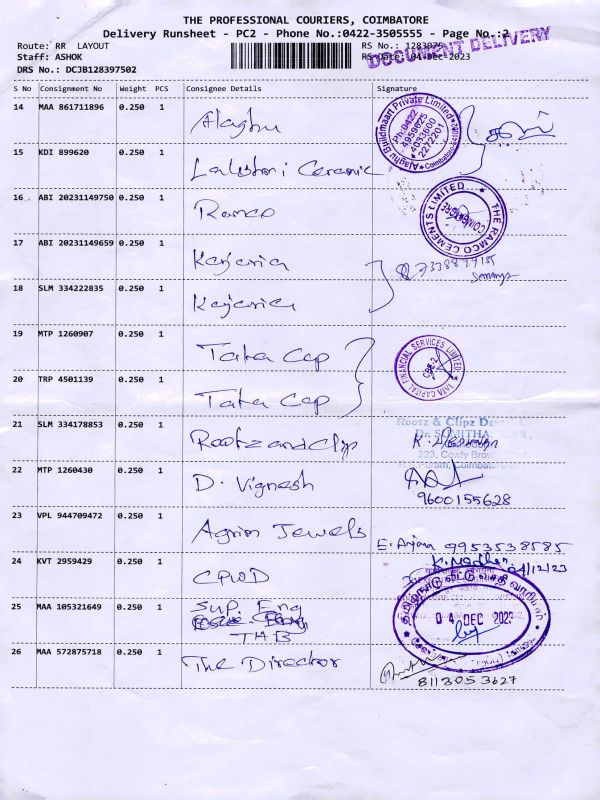 THE PROFESSIONAL COURIERS, COIMBATORE
Delivery Runsheet - PC2 - Phone No.:0422-3505555 - Page No.:2
DOCUMENT DELIVERY
Route: RR LAYOUT
RS No.: 1283975
Staff: ASHOK
RS Date: 04-Dec-2023
DRS No.: DCJB128397502
S No Consignment No Weight PCS Consignee Details Signature
14 MAA 861711896 0.250 1 Alaghu
Alaghu Buildmaart Private Limited
Ph:0422
4959625
4033600
2272201
15 KDI 899620 0.250 1 Lakshmi Ceramic
16 ABI 20231149750 0.250 1 Ramco
THE RAMCO CEMENTS LIMITED
COIMBATORE
17 ABI 20231149659 0.250 1 Kajaria
18 SLM 334222835 0.250 1 Kajaria
19 MTP 1260907 0.250 1 Tata Cap
TATA CAPITAL FINANCIAL SERVICES LIMITED
20 TRP 4501139 0.250 1 Tata Cap
21 SLM 334178853 0.250 1 Rootz and Clip
Rootz & Clipz
223, Cowly Brown
22 MTP 1260430 0.250 1 D. Vignesh
9600155628
23 VPL 944709472 0.250 1 Agrim Jewels
E. Anjan 9953538585
24 KVT 2959429 0.250 1 CPWD
04/12/23
25 MAA 105321649 0.250 1 Sup. Eng
THB
தமிழ்நாடு வீட்டு வசதி வாரியம்
04 DEC 2023
26 MAA 572875718 0.250 1 The Director
8113053627